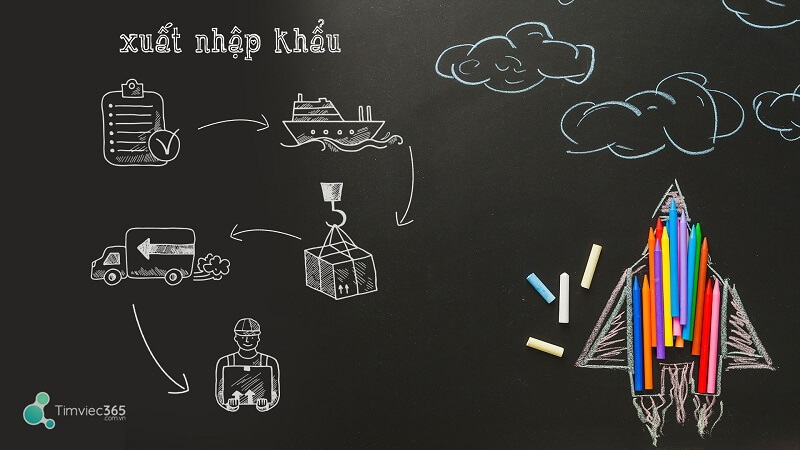 xuất nhập khẩu
Timviec365
.com.vn